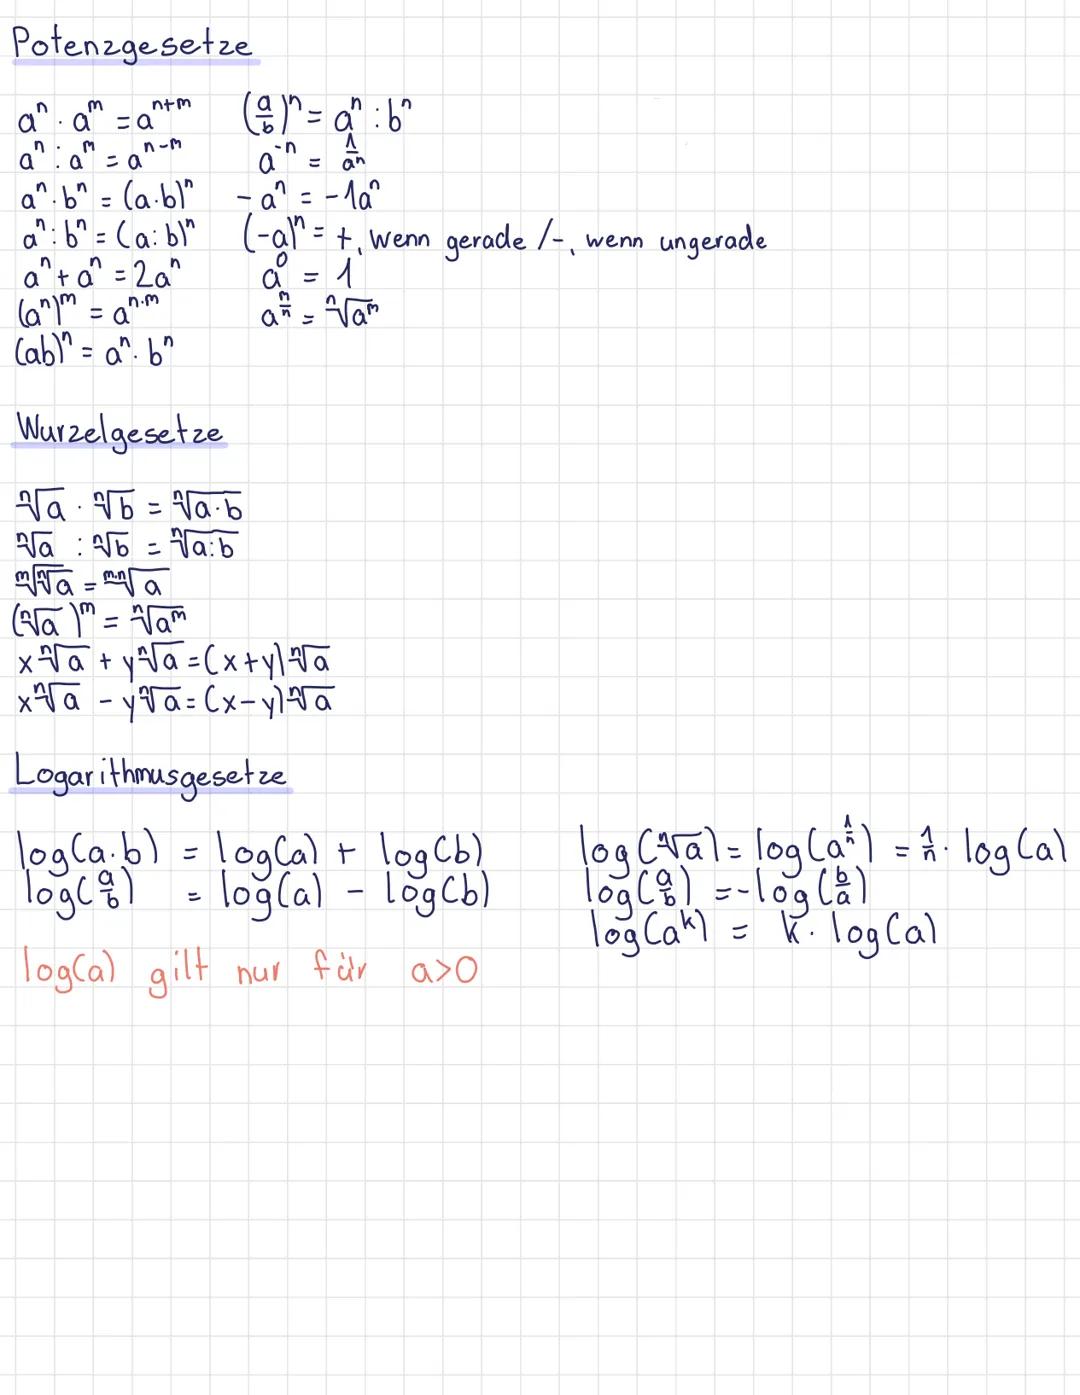 Potenzgesetze
aⁿ · aᵐ = aⁿ⁺ᵐ
aⁿ : aᵐ = aⁿ⁻ᵐ
aⁿ · bⁿ = (a·b)ⁿ
aⁿ : bⁿ = (a:b)ⁿ
aⁿ + aⁿ = 2aⁿ
(aⁿ)ᵐ = aⁿ·ᵐ
(ab)ⁿ = aⁿ · bⁿ
(a/b)ⁿ = aⁿ : bⁿ
a⁻ⁿ = 1/aⁿ
- aⁿ = -1aⁿ
(-a)ⁿ = +, wenn gerade /-, wenn ungerade
a⁰ = 1
a^(m/n) = ⁿ√aᵐ
Wurzelgesetze
ⁿ√a · ⁿ√b = ⁿ√a·b
ⁿ√a : ⁿ√b = ⁿ√a:b
ᵐ√ⁿ√a = ᵐ·ⁿ√a
(ⁿ√a)ᵐ = ⁿ√aᵐ
xⁿ√a + yⁿ√a = (x+y)ⁿ√a
xⁿ√a - yⁿ√a = (x-y)ⁿ√a
Logarithmusgesetze
log(a·b) = log(a) + log(b)
log(a/b) = log(a) - log(b)
log(ⁿ√a) = log(a^(1/n)) = 1/n · log(a)
log(a/b) = -log(b/a)
log(aᵏ) = k · log(a)
log(a) gilt nur für a>0